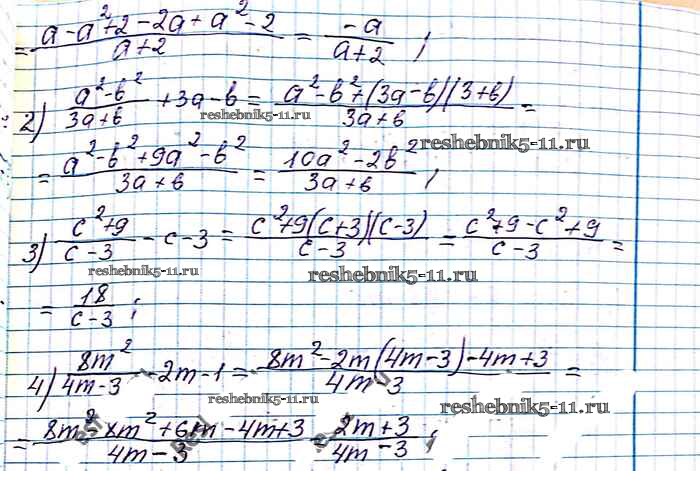 = (a-a²+2-2a+a²-2)/(a+2) = (-a)/(a+2) ;
2) (a²-в²)/(3a+в) +3a-в = (a²-в²+(3a-в)(3+в))/(3a+в) =
reshebnik5-11.ru
reshebnik5-11.ru
= (a²-в²+9a²-в²)/(3a+в) = (10a²-2в²)/(3a+в) ;
3) (c²+9)/(c-3) - c-3 = (c²+9(c+3)(c-3))/(c-3) = (c²+9-c²+9)/(c-3) =
reshebnik5-11.ru
reshebnik5-11.ru
= 18/(c-3) ;
4) 8m²/(4m-3) -2m-1 = (8m²-2m(4m-3)-4m+3)/(4m-3) =
reshebnik5-11.ru
reshebnik5-11.ru
= (8m²-8m²+6m-4m+3)/(4m-3) = (2m+3)/(4m-3) ;